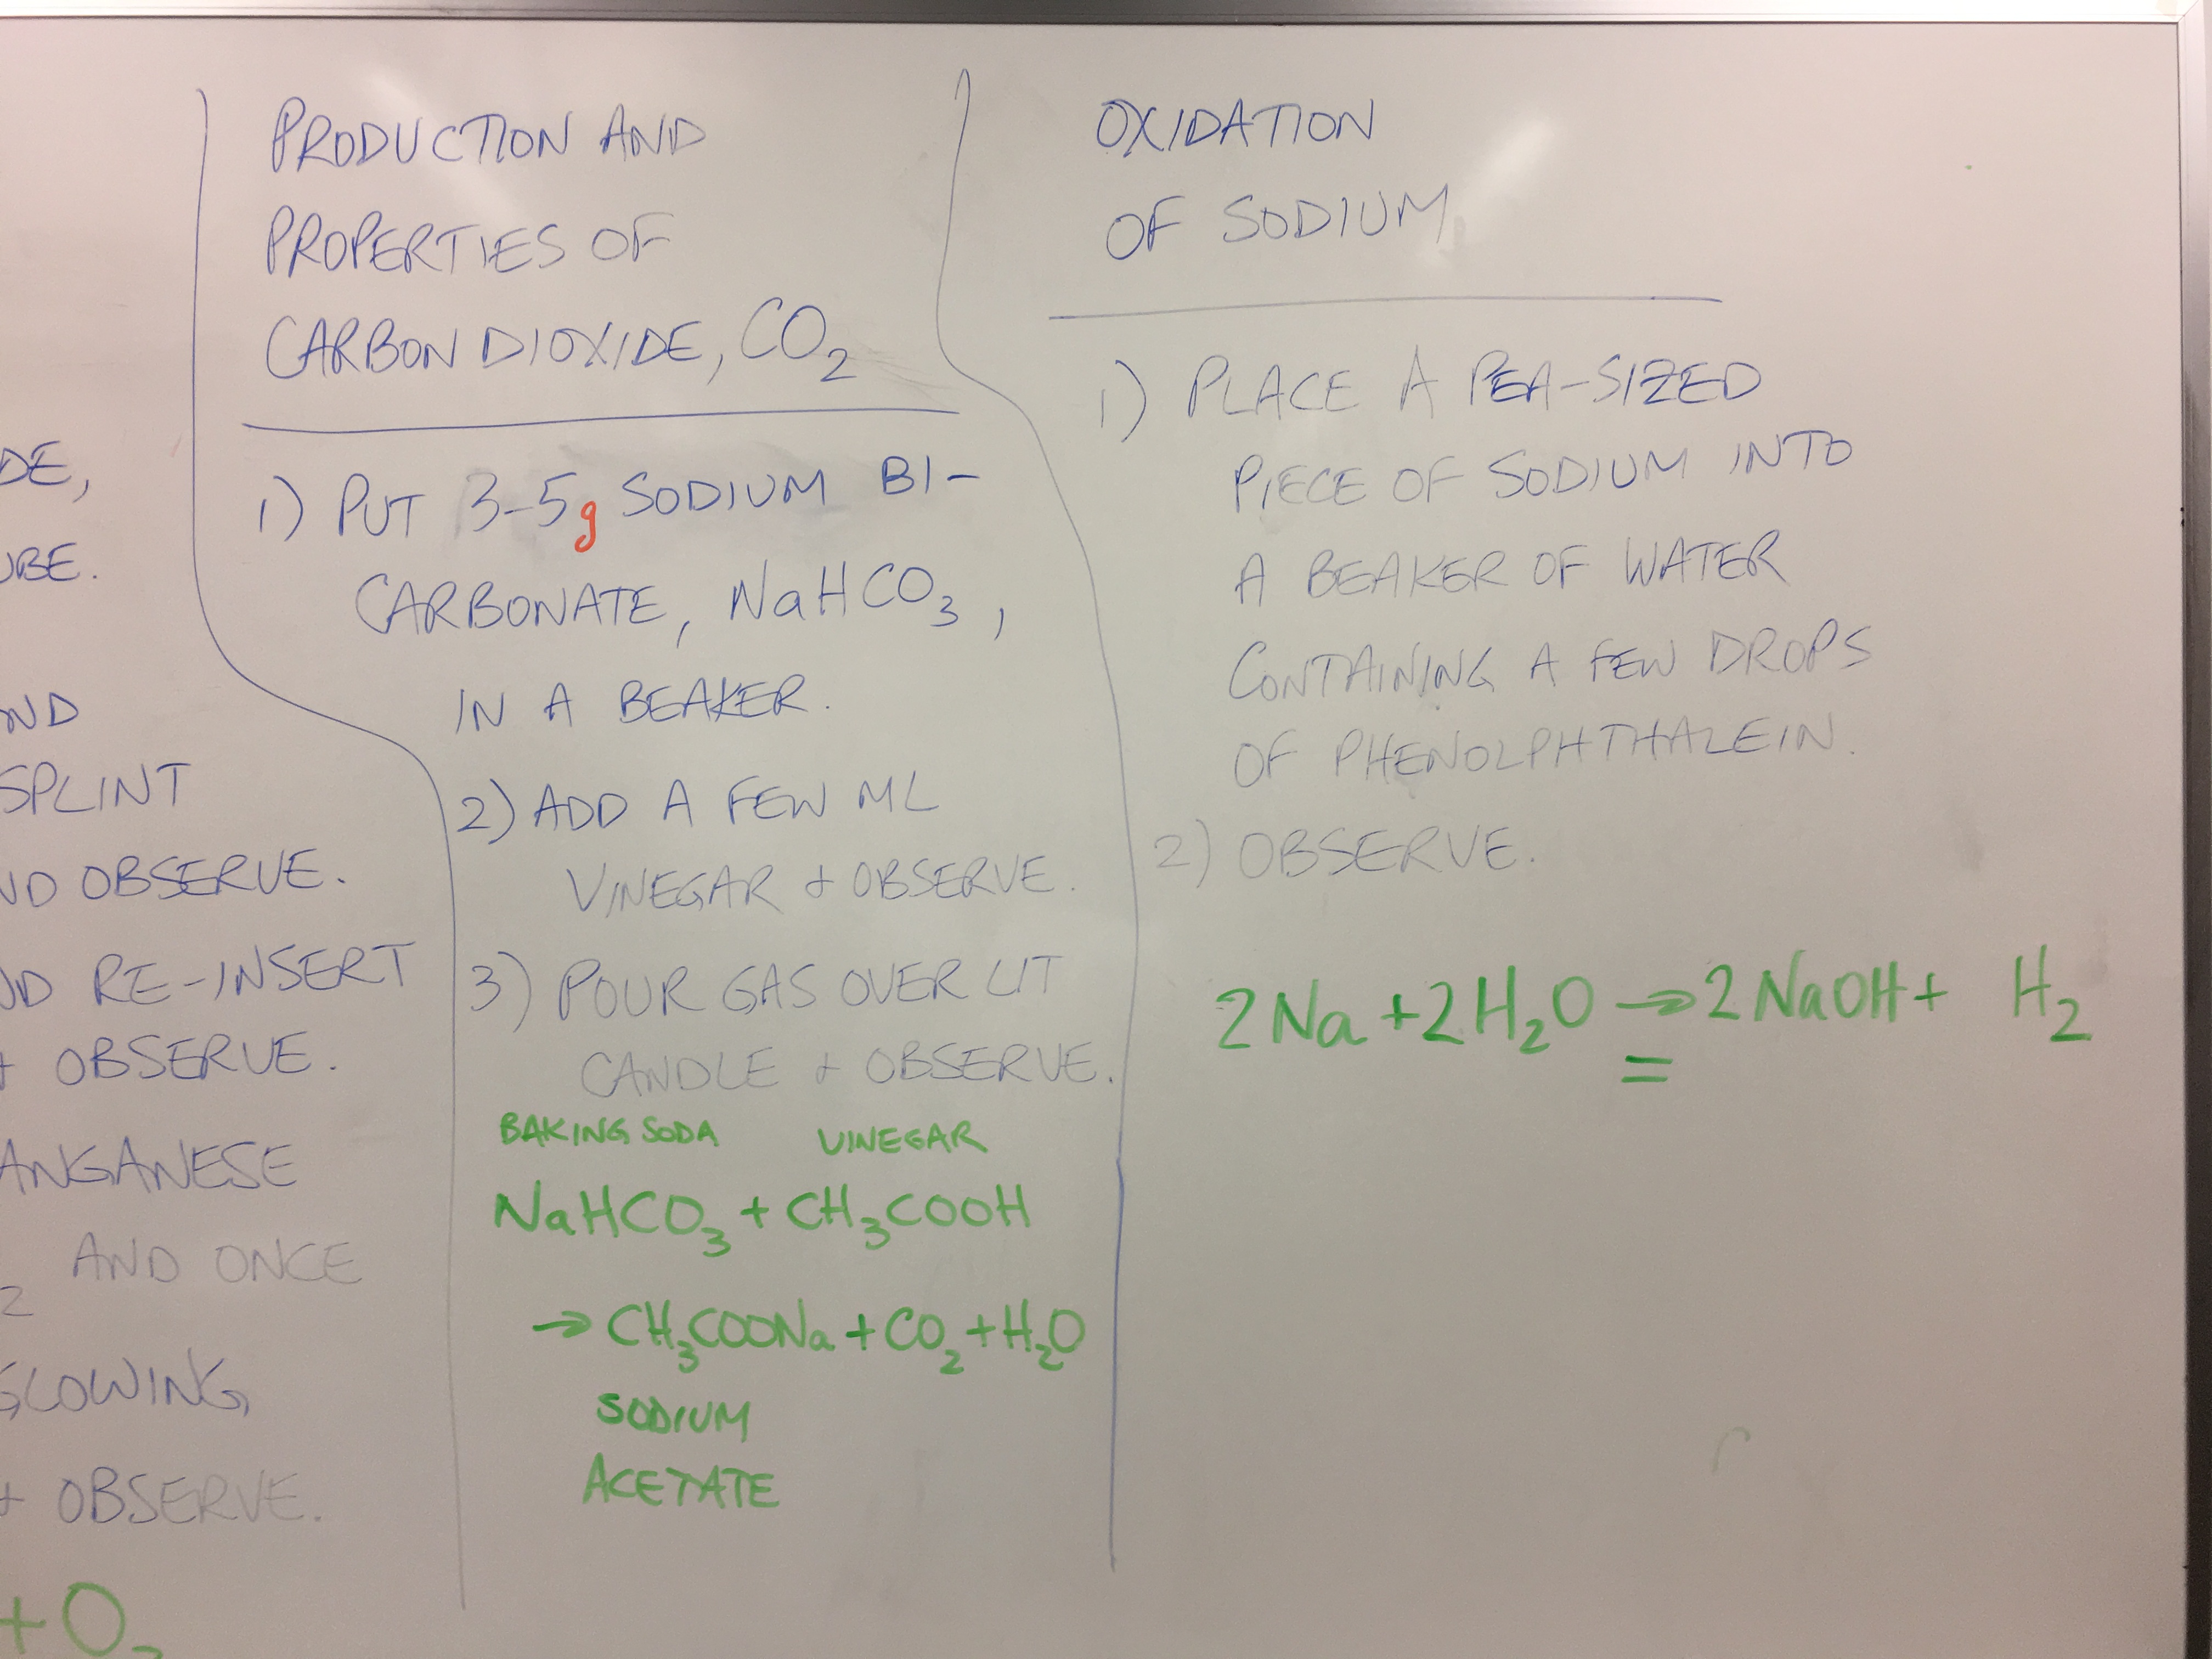 DE,
UBE.
ND
SPLINT
ND OBSERVE.
ND RE-INSERT
+ OBSERVE.
ANGANESE
2 AND ONCE
GLOWING,
+ OBSERVE.
+ O2
PRODUCTION AND
PROPERTIES OF
CARBON DIOXIDE, CO2
1) PUT 3-5g SODIUM BI-
CARBONATE, NaHCO3,
IN A BEAKER.
2) ADD A FEW ML
VINEGAR + OBSERVE.
3) POUR GAS OVER LIT
CANDLE + OBSERVE.
BAKING SODA VINEGAR
NaHCO3 + CH3COOH
→ CH3COONa + CO2 + H2O
SODIUM
ACETATE
OXIDATION
OF SODIUM
1) PLACE A PEA-SIZED
PIECE OF SODIUM INTO
A BEAKER OF WATER
CONTAINING A FEW DROPS
OF PHENOLPHTHALEIN.
2) OBSERVE.
2Na + 2H2O → 2NaOH + H2
=